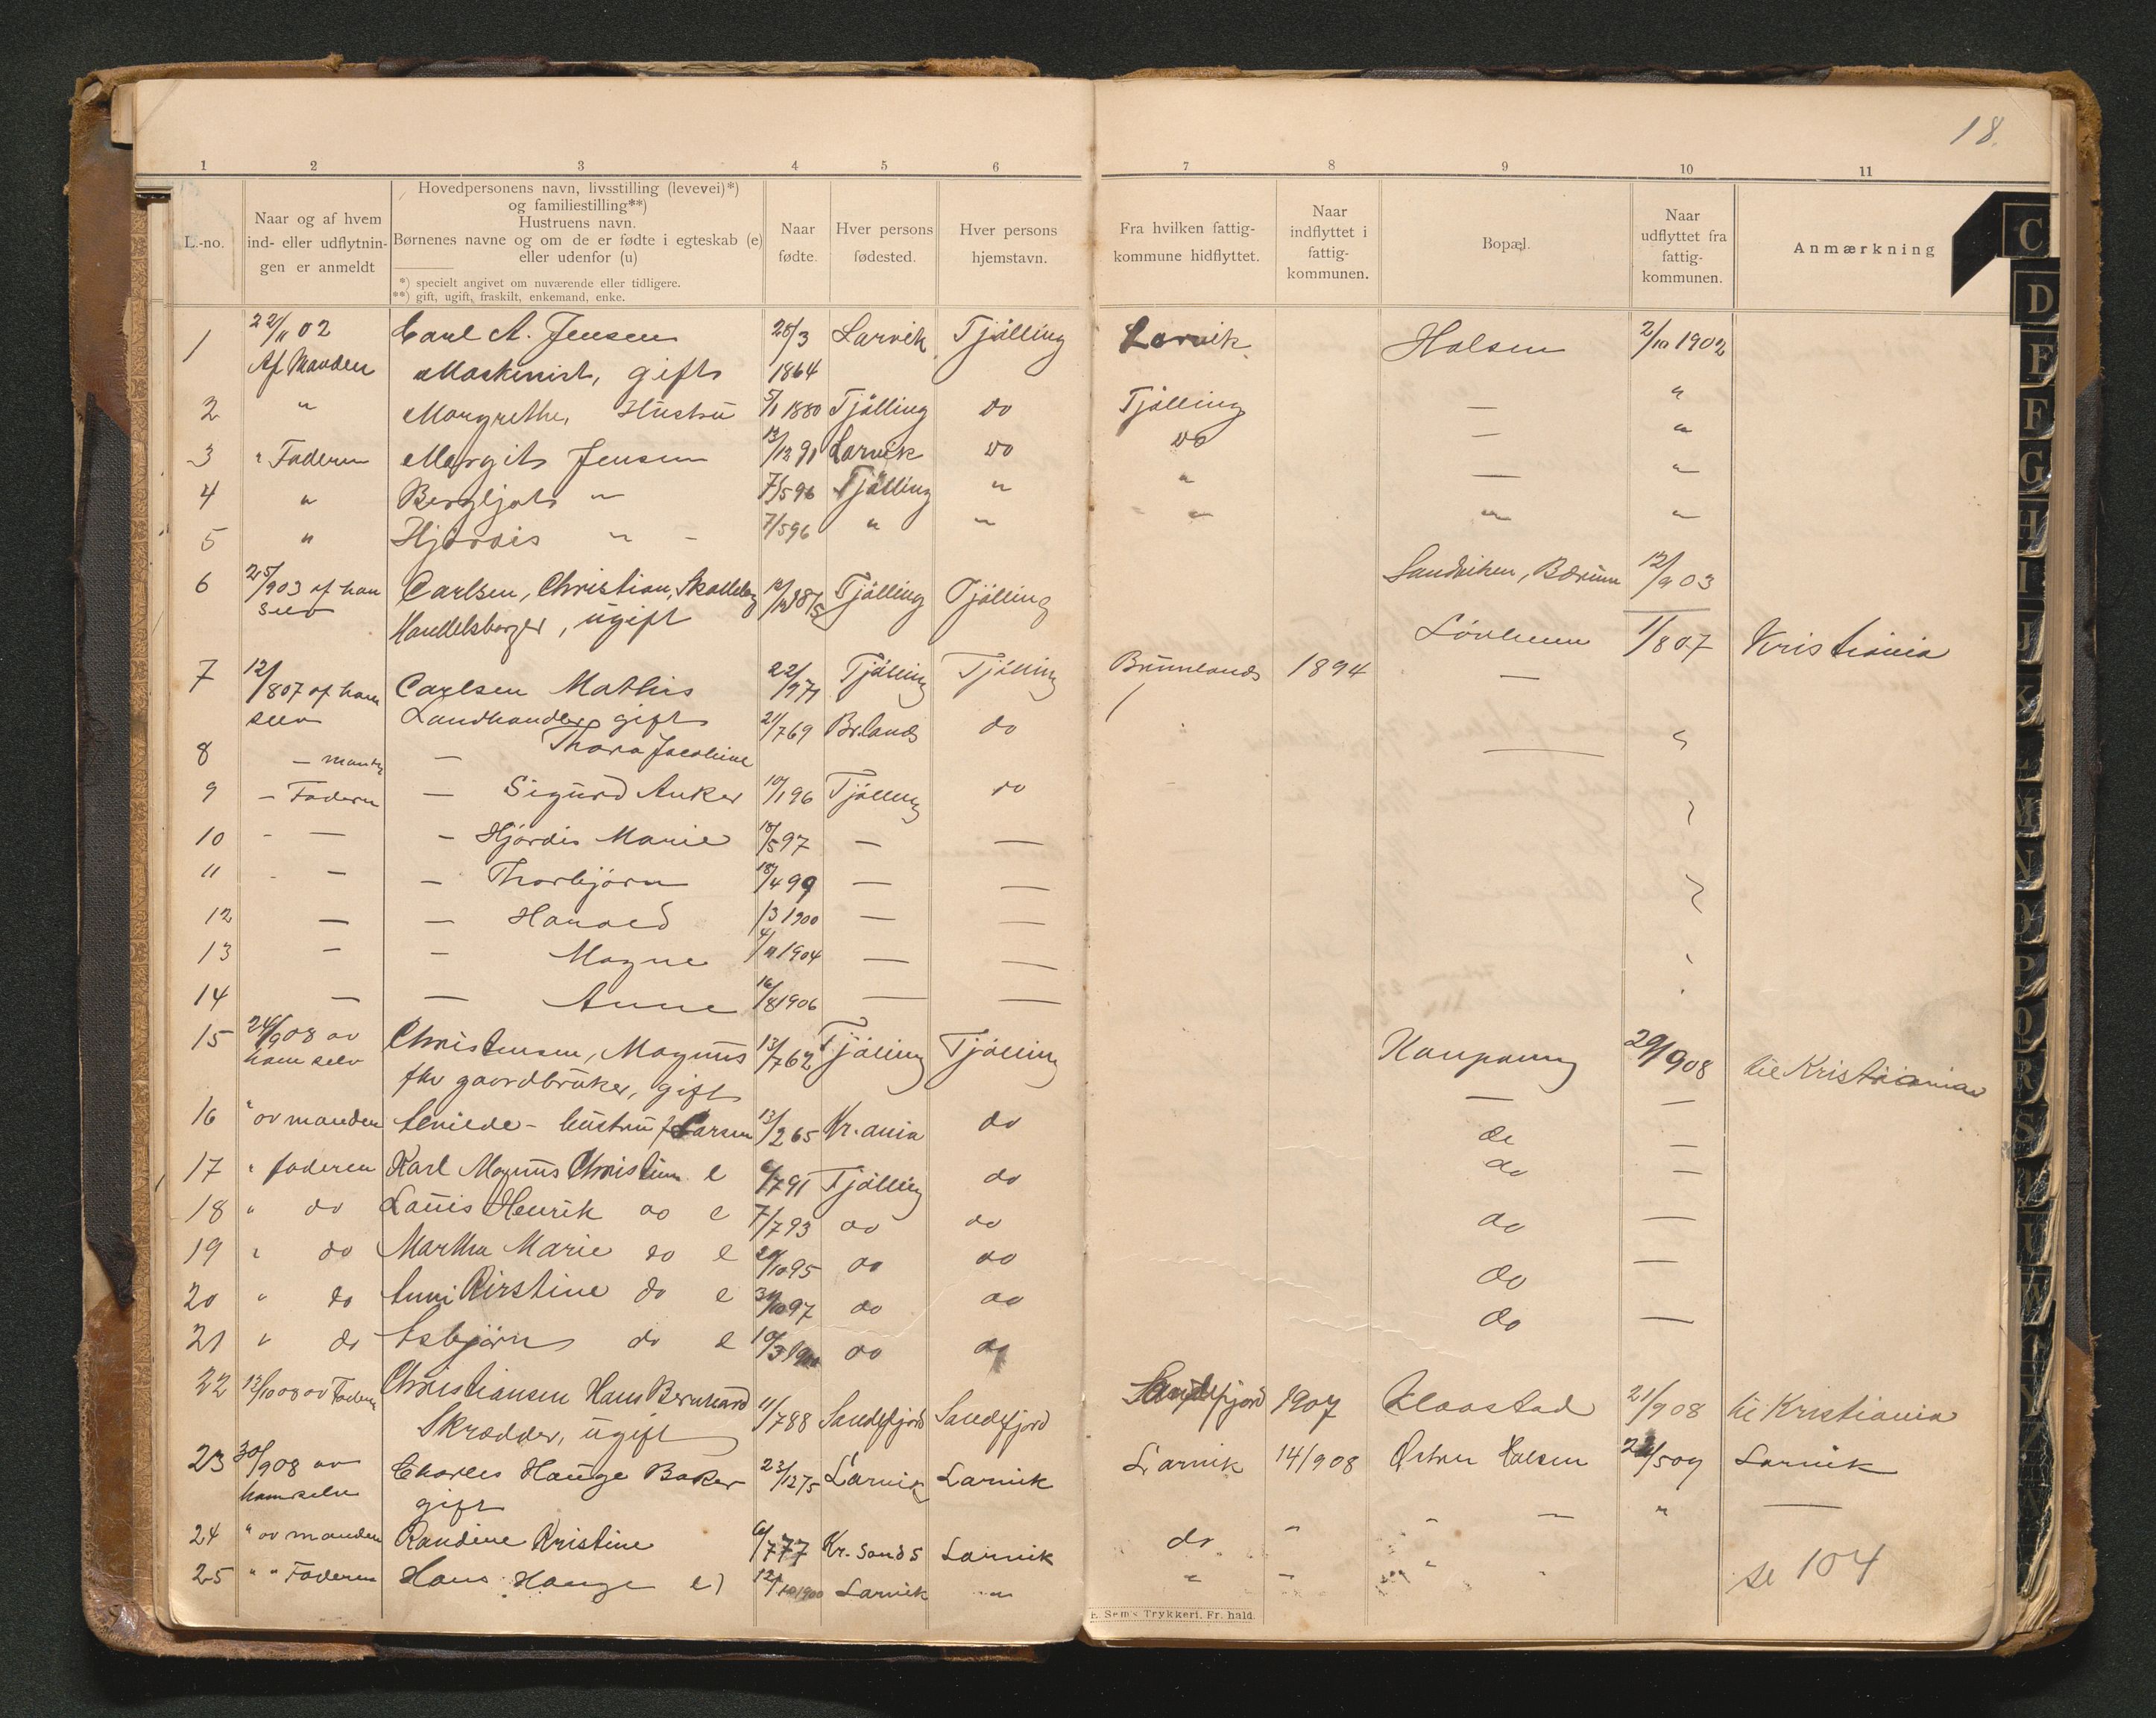 18.
1 2 3 4 5 6 7 8 9 10 11
L.-no.
Naar og af hvem
ind- eller udflytnin-
gen er anmeldt
Hovedpersonens navn, livsstilling (levevei)*)
og familiestilling**)
Hustruens navn.
Børnenes navne og om de er fødte i egteskab (e)
eller udenfor (u)
*) specielt angivet om nuværende eller tidligere.
**) gift, ugift, fraskilt, enkemand, enke.
Naar
fødte.
Hver persons
fødested.
Hver persons
hjemstavn.
Fra hvilken fattig-
kommune hidflyttet.
Naar
indflyttet i
fattig-
kommunen.
Bopæl.
Naar
udflyttet fra
fattig-
kommunen.
Anmærkning
1 22/11 02 Carl A. Jensen 28/3 Larvik Tjølling Larvik Halsen 2/10 1902
Af Manden Maskinist, gift 1864
2 " Margrethe, Hustru 5/1 1880 Tjølling do Tjølling — "
3 " Faderen Margit Jensen 13/12 91 Larvik do do — "
4 " Bergljot " 7/5 96 Tjølling " " — "
5 " Hjördis " - 7/5 96 " " " " "
6 25/9 03 af han Carlsen, Christian, Skalleberg 12/12 1875 Tjølling Tjølling Sandviken, Bærum 12/9 03
selv Handelsborger, ugift
7 12/8 07 af ham Carlsen Mathis 22/1 71 Tjølling Tjølling Brunlanes 1894 Lövheim 1/8 07 Kristiania
selv Landhandler gift
8 — manden — Thora Jacobine 21/7 69 Br.lanes do — "
9 — Faderen — Sigurd Anker 10/1 96 Tjølling do
10 - — — Hjördis Marie 18/5 97 — —
11 - — — Thorbjörn 18/4 99 — —
12 — — Harald /3 1900 — —
13 — — Magne 4/11 1904 — —
14 — — Anne 16/8 1906 — —
15 24/9 08 av Christensen, Magnus 13/7 62 Tjølling Tjølling Kaupang 29/9 08 til Kristiania
ham selv fhv gaardbruker, gift
16 " av manden Amilde - hustru f Larsen 13/2 65 Kr.ania do — —
17 " faderen Karl Magnus Christian e 6/7 91 Tjølling do do —
18 " do Lauis Henrik do e 7/7 93 do do do —
19 " do Martha Marie do e 20/10 95 do do do —
20 " do Anni Kirstine do e 30/10 97 do do do —
21 " do Asbjørn do e 10/3 1900 do do do —
22 13/10 08 av Faderen Christiansen Hans Bernhard 11/7 88 Sandefjord Sandefjord Sandefjord 1907 Klaastad 21/9 08 til Kristiania
Skrædder, ugift
23 30/9 08 av Charles Hauge Baker 23/12 75 Larvik Larvik Larvik 14/9 08 Østre Halsen 24/5 09 Larvik
ham selv gift
24 " av manden Randine Kristine 6/7 77 Kr.sands Larvik do " - — " —
25 " " Faderen Hans Hauge e) 12/10 1900 Larvik " " -
se 104
E. Sem's Trykkeri, Fr. hald.
C
D
E
F
G
H
I
J
K
L
M
N
O
P
Q
R
S
T
U
W
Y
Z